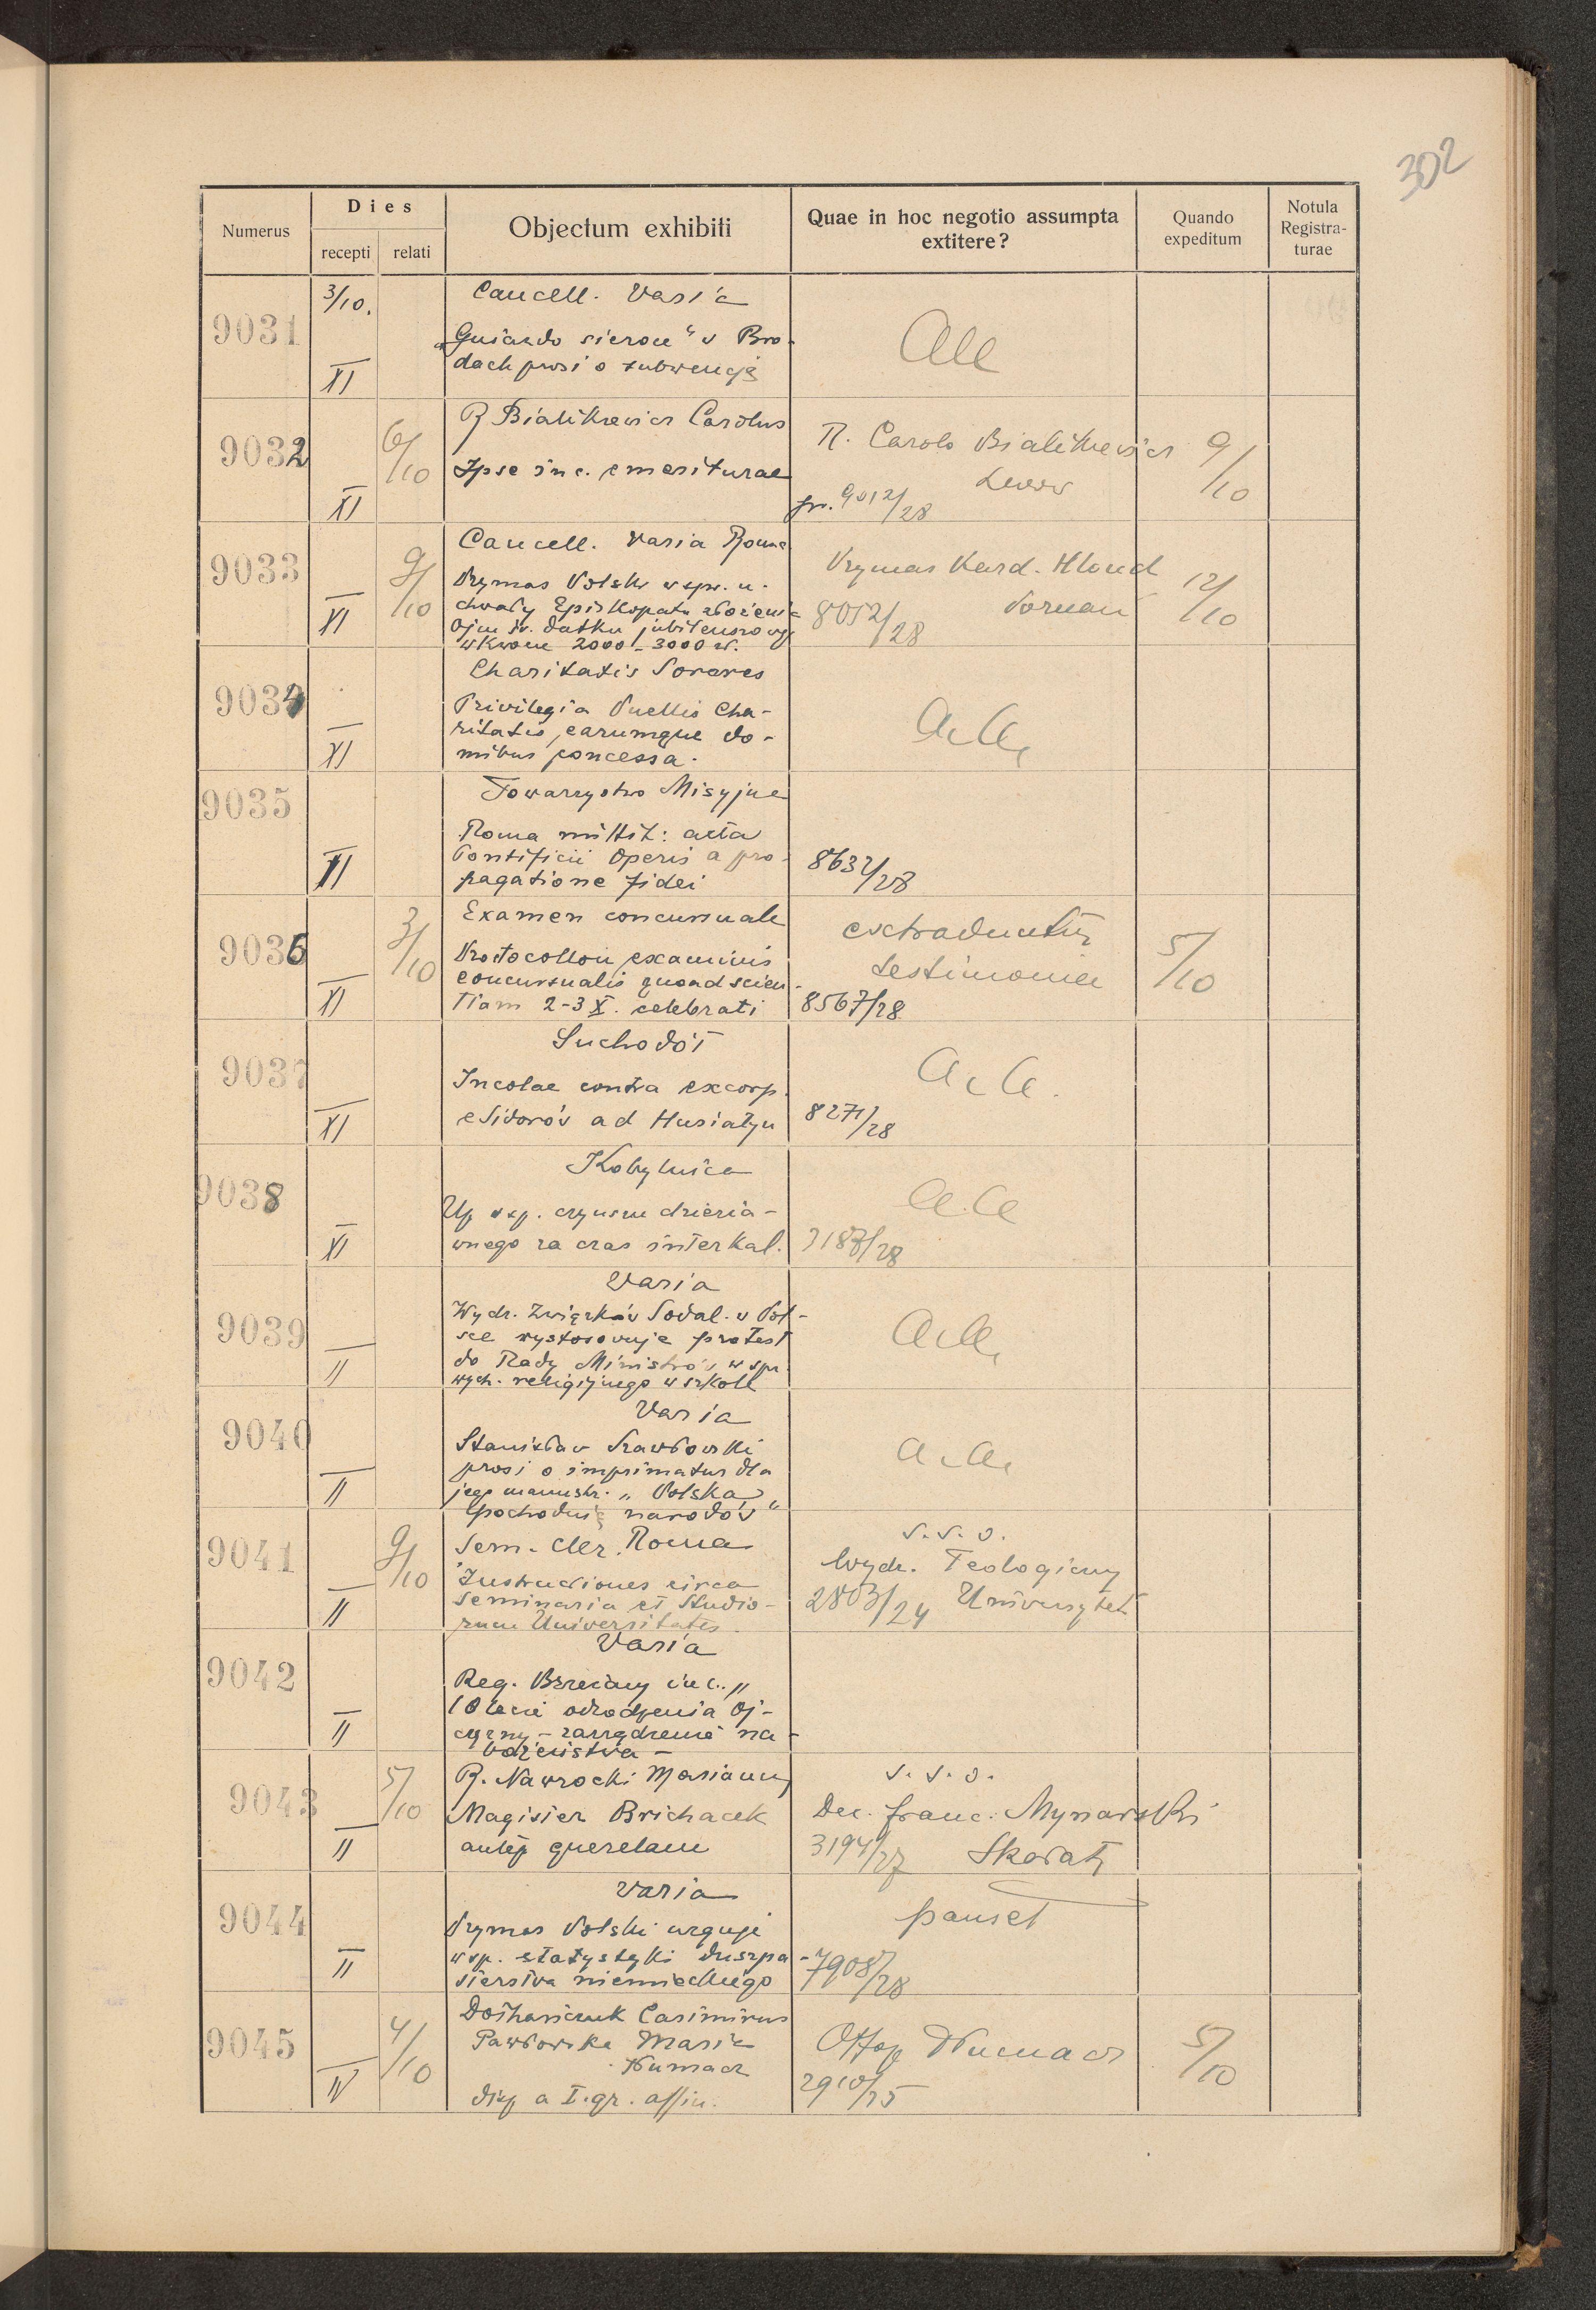 302
Numerus
Dies
recepti relati
Objectum exhibiti
Quae in hoc negotio assumpta extitere?
Quando expeditum
Notula Registra-turae
9031
3/10.
XI
Cancell. Varia
„Gniazdo sieroce" w Bro-
dach prosi o subwencję
9032
XI
6/10
R Bialikiewicz Carolus
Ipse in c. emeriturae
R. Carolo Bialikiewicz
Lwów
pr. 9012/28
9/10
9033
XI
9/10
Cancell. Varia Roma
Prymas Polski w spr. u-
chwały Episkopatu złożenia
Ojcu św. datku jubileuszowego
w kwocie 2000-3000 zł.
Prymas Kard. Hlond
Poznań
8052/28
12/10
9034
XI
Charitatis Sorores
Privilegia Puellis Cha-
ritatis, earumque do-
mibus concessa.
a.a.
9035
XI
Towarzystwo Misyjne
Roma mittit: acta
Pontificii Operis a pro-
pagatione fidei
8632/28
9036
XI
3/10
Examen concursuale
Protocollon examinis
concursualis quoad scien-
tiam 2-3 X. celebrati
extraduntur
testimonia
8567/28
5/10
9037
XI
Suchodół
Incolae contra excorp.
e Sidorów ad Husiatyn
a.a.
8271/28
9038
XI
Kobylnica
Up. wsp. czynszu dzierża-
wnego za czas interkal.
a.a
3187/28
9039
II
Varia
Wydz. Związków Sodal. w Pol-
sce wystosowuje protest
do Rady Ministrów w spr.
wych. religijnego w szkole
a.a.
9040
II
Varia
Stanisław Szawłowski
prosi o imprimatur dla
jego manuskr. „Polska
pochodnią narodów"
a.a.
9041
II
9/10
Sem. Cler. Roma
Instructiones circa
seminaria et studio-
rum Universitates.
s.s.o.
Wydz. Teologiczny
2803/24 Uniwersytet
9042
II
Varia
Reg. Brzeżany in c. „
10 lecie odrodzenia Oj-
czyzny – zarządzenie na-
bożeństwa –
9043
II
5/10
R. Nawrocki Marianus
Magister Brichacek
querelam
s.s.o.
Dec. franc. Mynarski
3194/27 Skałat
9044
II
Varia
Prymas Polski urguje
w sp. statystyki duszpa-
sterstwa niemieckiego
pauset
7908/28
9045
IV
4/10
Casimirus
Pawłowska Maria
Tłumacz
disp a I. gr. affin.
Offop Tłumacz
2910/25
5/10